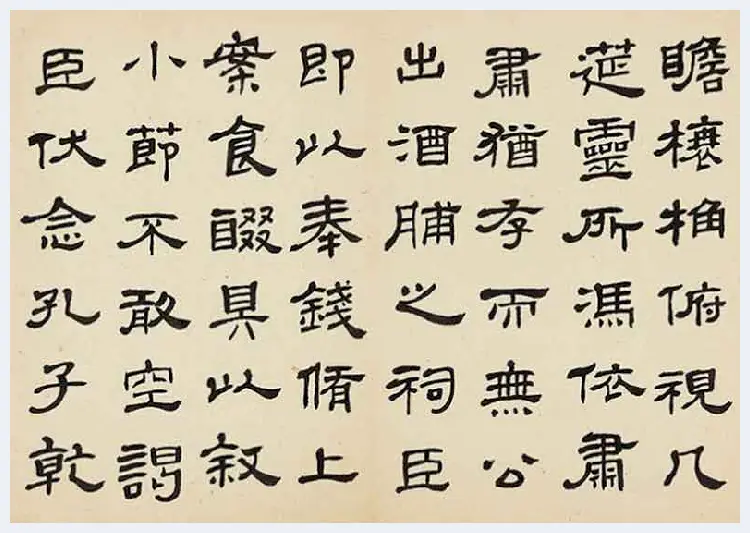 瞻榱桷俯視几
莚靈所馮依肅
肅猶存而無公
出酒脯之祠臣
即以奉錢脩上
案食醊具以叙
小節不敢空謁
臣伏念孔子乾